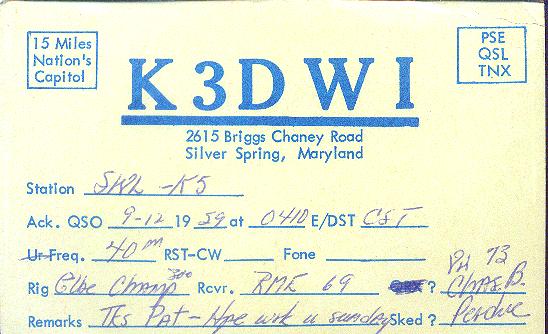 15 Miles
Nation's
Capitol
PSE
QSL
TNX
K3DWI
2615 Briggs Chaney Road
Silver Spring, Maryland
Station SWL - K5
Ack. QSO 9-12 1959 at 0410 E/DST CST
Ur Freq. 40m RST-CW Fone
Rig Globe Champ 300 Rcvr. RME 69 QRX ? Chas. B.
Remarks Tks Pat - Hpe wrk u sunday Sked ? Perdue
73